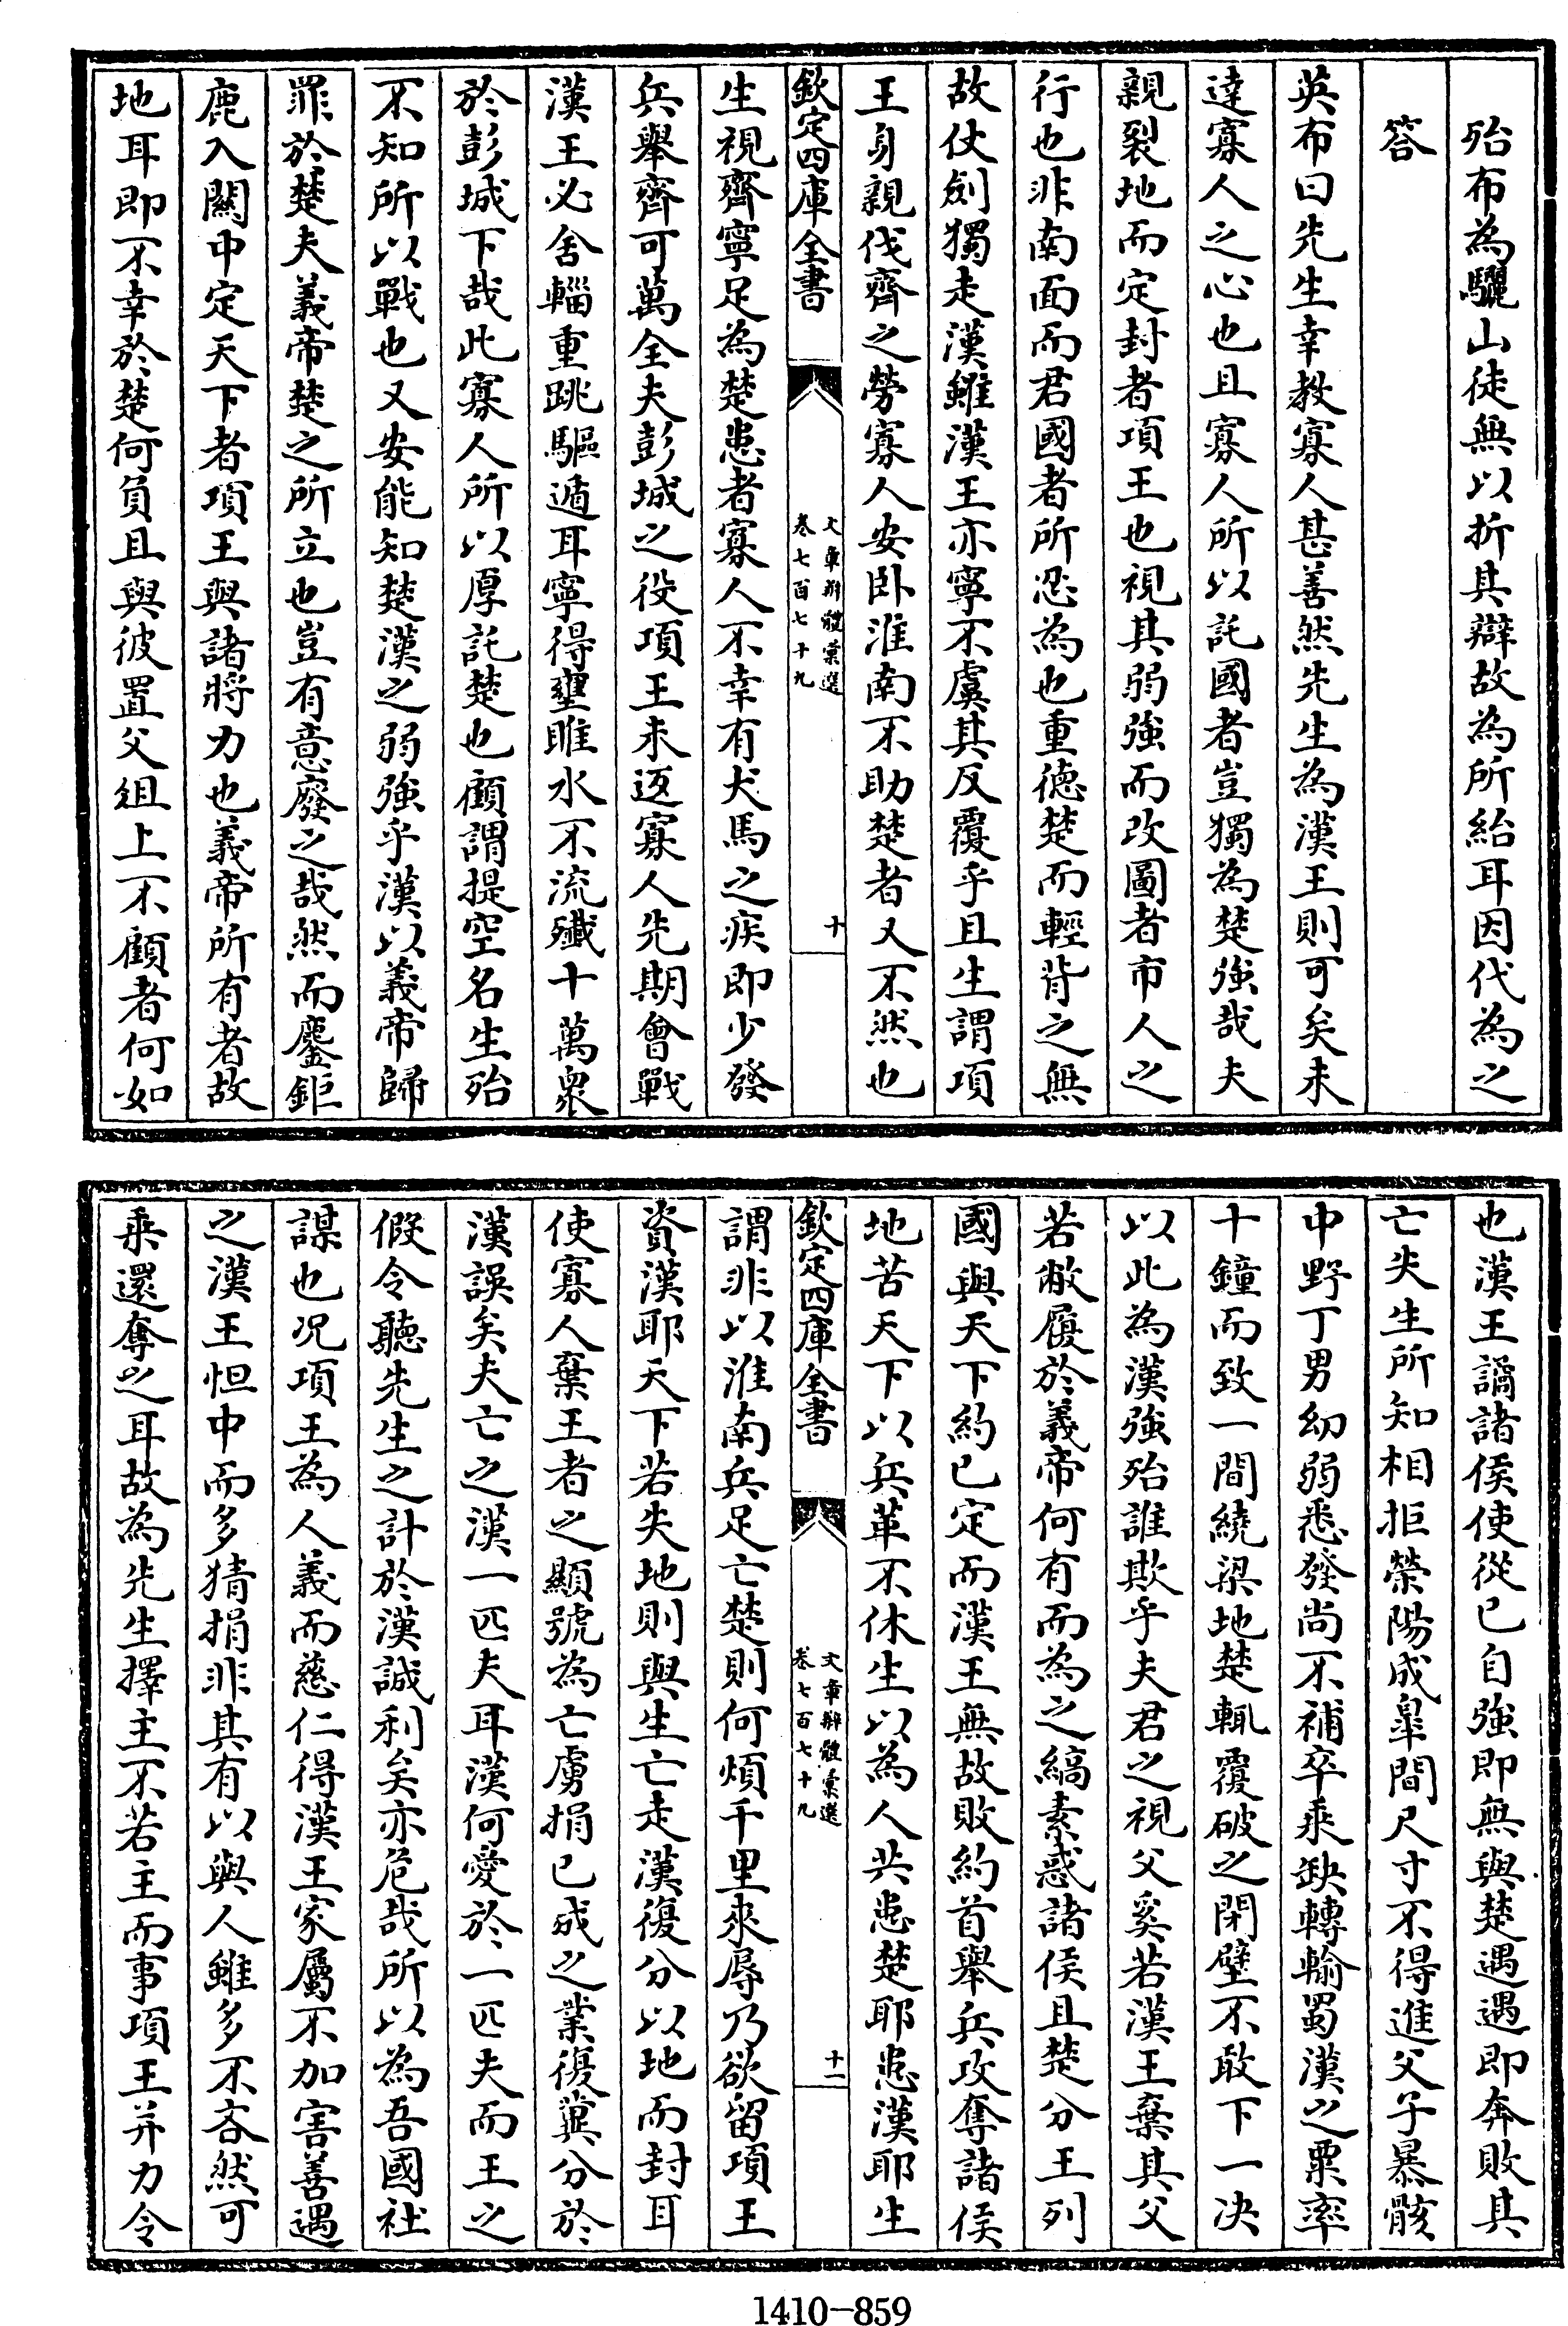 殆布為驪山徒無以折其辯故為所紿耳因代為之
答
英布曰先生幸教寡人甚善然先生為漢王則可矣未
達寡人之心也且寡人所以託國者豈獨為楚強哉夫
親裂地而定封者項王也視其弱強而改圖者市人之
行也非南面而君國者所忍為也重德楚而輕背之無
故仗劍獨走漢雖漢王亦寧不虞其反覆乎且生謂項
王身親伐齊之勞寡人安卧淮南不助楚者又不然也
欽定四庫全書
文章辨體彙選
卷七百七十九
十
生視齊寧足為楚患者寡人不幸有犬馬之疾即少發
兵舉齊可萬全夫彭城之役項王未返寡人先期會戰
漢王必舍輜重跳驅遁耳寧得壅睢水不流殲十萬衆
於彭城下哉此寡人所以厚託楚也顧謂提空名生殆
不知所以戰也又安能知楚漢之弱強乎漢以義帝歸
罪於楚夫義帝楚之所立也豈有意廢之哉然而鏖鉅
鹿入關中定天下者項王與諸將力也義帝所有者故
地耳即不幸於楚何負且與彼置父俎上不顧者何如
也漢王譎諸侯使從已自強即無與楚遇遇即奔敗其
亡失生所知相拒滎陽成臯間尺寸不得進父子暴骸
中野丁男幼弱悉發尚不補卒乘缺轉輸蜀漢之粟率
十鐘而致一間繞梁地楚輒覆破之閉壁不敢下一决
以此為漢強殆誰欺乎夫君之視父奚若漢王棄其父
若敝履於義帝何有而為之縞素惑諸侯且楚分王列
國與天下約已定而漢王無故敗約首舉兵攻奪諸侯
地苦天下以兵革不休生以為人共患楚耶患漢耶生
欽定四庫全書
文章辨體彙選
卷七百七十九
十一
謂非以淮南兵足亡楚則何煩千里來辱乃欲留項王
資漢耶天下若失地則與生亡走漢復分以地而封耳
使寡人棄王者之顯號為亡虜捐已成之業復冀分於
漢誤矣夫亡之漢一匹夫耳漢何愛於一匹夫而王之
假令聽先生之計於漢誠利矣亦危哉所以為吾國社
謀也况項王為人義而慈仁得漢王家屬不加害善遇
之漢王怛中而多猜捐非其有以與人雖多不吝然可
乘還奪之耳故為先生擇主不若主而事項王并力令
1410-859